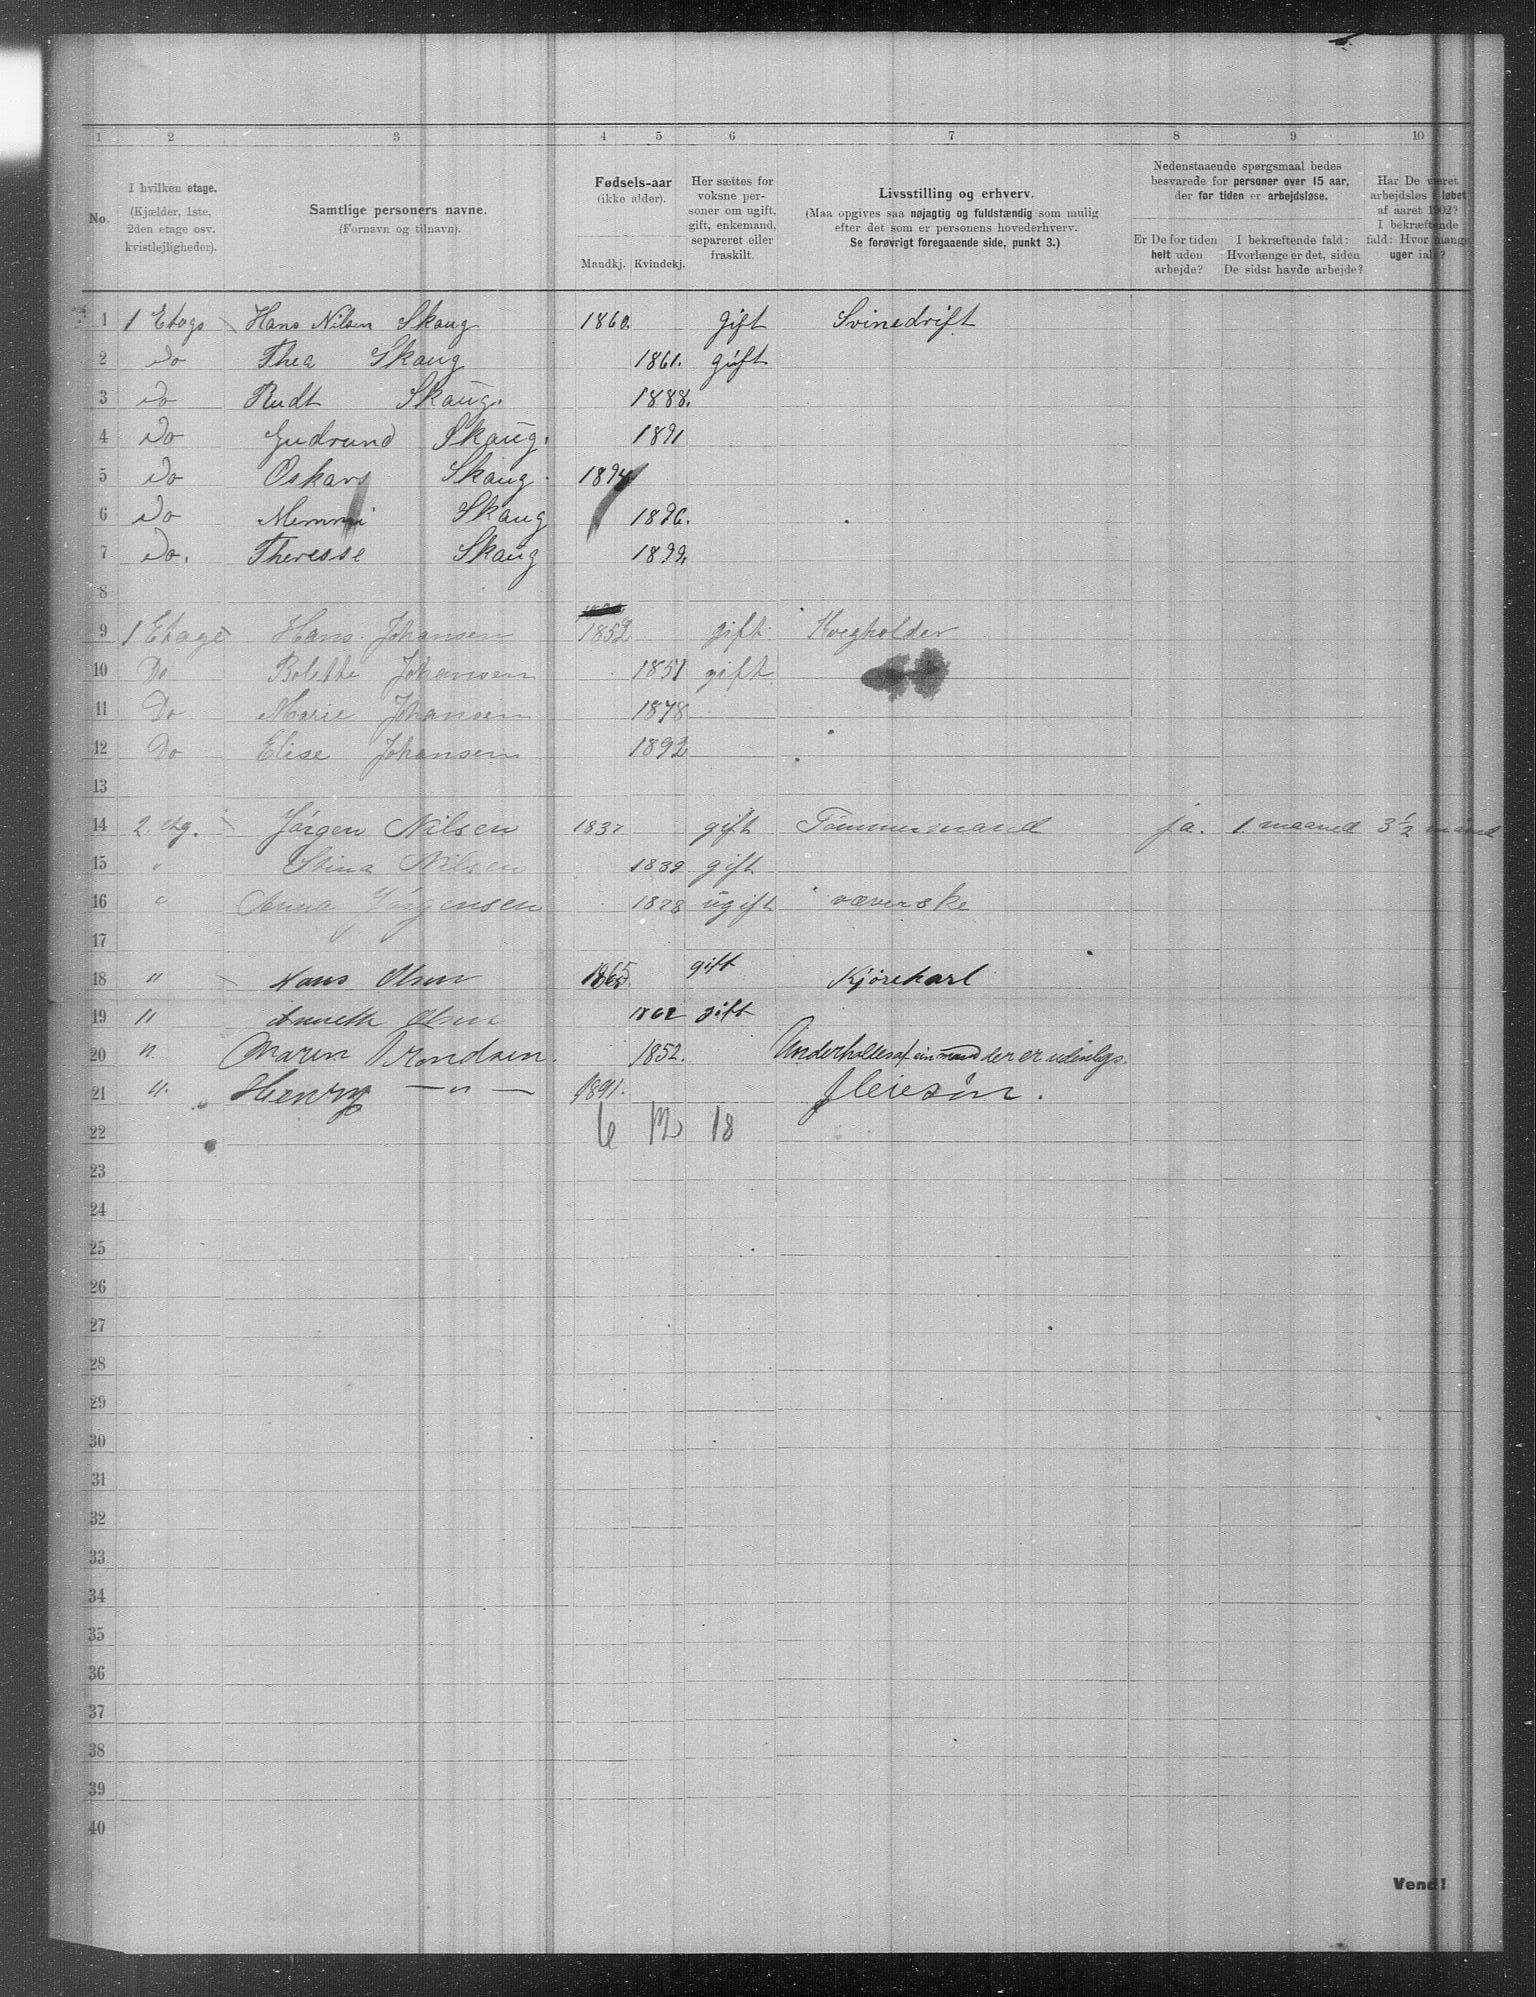 1 2 3 4 5 6 7 8 9 10
No.
I hvilken etage.
(Kjælder, 1ste,
2den etage osv.
kvistlejligheder).
Samtlige personers navne.
(Fornavn og tilnavn).
Fødsels-aar
(ikke alder).
Mandkj. Kvindekj.
Her sættes for
voksne per-
soner om ugift,
gift, enkemand,
separeret eller
fraskilt.
Livsstilling og erhverv.
(Maa opgives saa nøjagtig og fuldstændig som mulig
efter det som er personens hovederhverv.
Se forøvrigt foregaaende side, punkt 3.)
Nedenstaaende spørgsmaal bedes
besvarede for personer over 15 aar,
der for tiden er arbejdsløse.
Er De for tiden
helt uden
arbejde?
I bekræftende fald:
Hvorlænge er det, siden
De sidst havde arbejde?
Har De været
arbejdsløs i løbet
af aaret 1902?
I bekræftende
fald: Hvor mange
uger ialt?
1 1 Etage Hans Nilsen Skaug 1860. gift Svinedrift
2 Do Thea Skaug 1861. gift
3 Do Rudt Skaug. 1888.
4 Do Gudrund Skaug. 1891
5 Do Oskar Skaug. 1894
6 Do Memmi Skaug 1896.
7 Do. Theresse Skaug 1899.
8
9 1 Etage Hans Johansen 1852 gift. Kvegholder
10 Do Bolette Johansen 1851 gift
11 Do Marie Johansen 1878
12 Do Elise Johansen 1892
13
14 2. etg. Jørgen Nilsen 1837 gift Tømmermand ja. 1 maaned 3 1/2 maaned
15 " Stina Nilsen 1839 gift
16 " Anna Jørgensen 1878 ugift væverske
17
18 " Hans Olsen 1865. gift Kjørekarl
19 " Annette Olsen 1862 gift
20 ". Maren Trondsen. 1852. Underholdes af sin mand der er udenlgs.
21 ". Henry — " — 1891. Pleiesøn.
22 6 12 18
23
24
25
26
27
28
29
30
31
32
33
34
35
36
37
38
39
40
Vend!